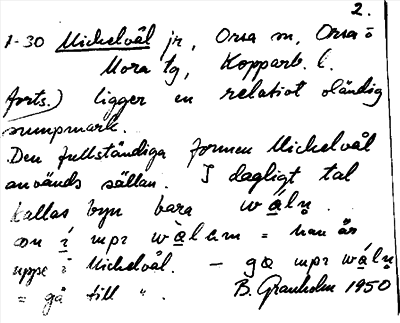 2.
1-30 Mickelvål jr, Orsa sn, Orsa o
Mora tg, Kopparb. l.
forts.) ligger en relativt oländig
sumpmark.
Den fullständiga formen Mickelvål
används sällan. I dagligt tal
kallas byn bara wáln.
on í upr wàlum = han är
uppe i Mickelvål. — ga upr wáln
= gå till ".  B. Granholm 1950